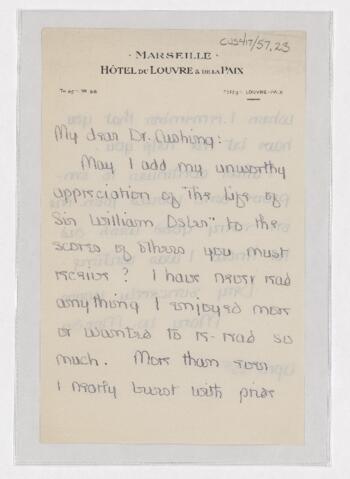 CUS417/57.23
· MARSEILLE ·
HÔTEL DU LOUVRE & DE LA PAIX
LOUVRE-PAIX
My dear Dr. Cushing:
May I add my unworthy
appreciation of "The Life of
Sir William Osler" to the
scores of others you must
receive? I have never read
anything I enjoyed more
or wanted to re-read so
much. More than ever
I nearly burst with pride